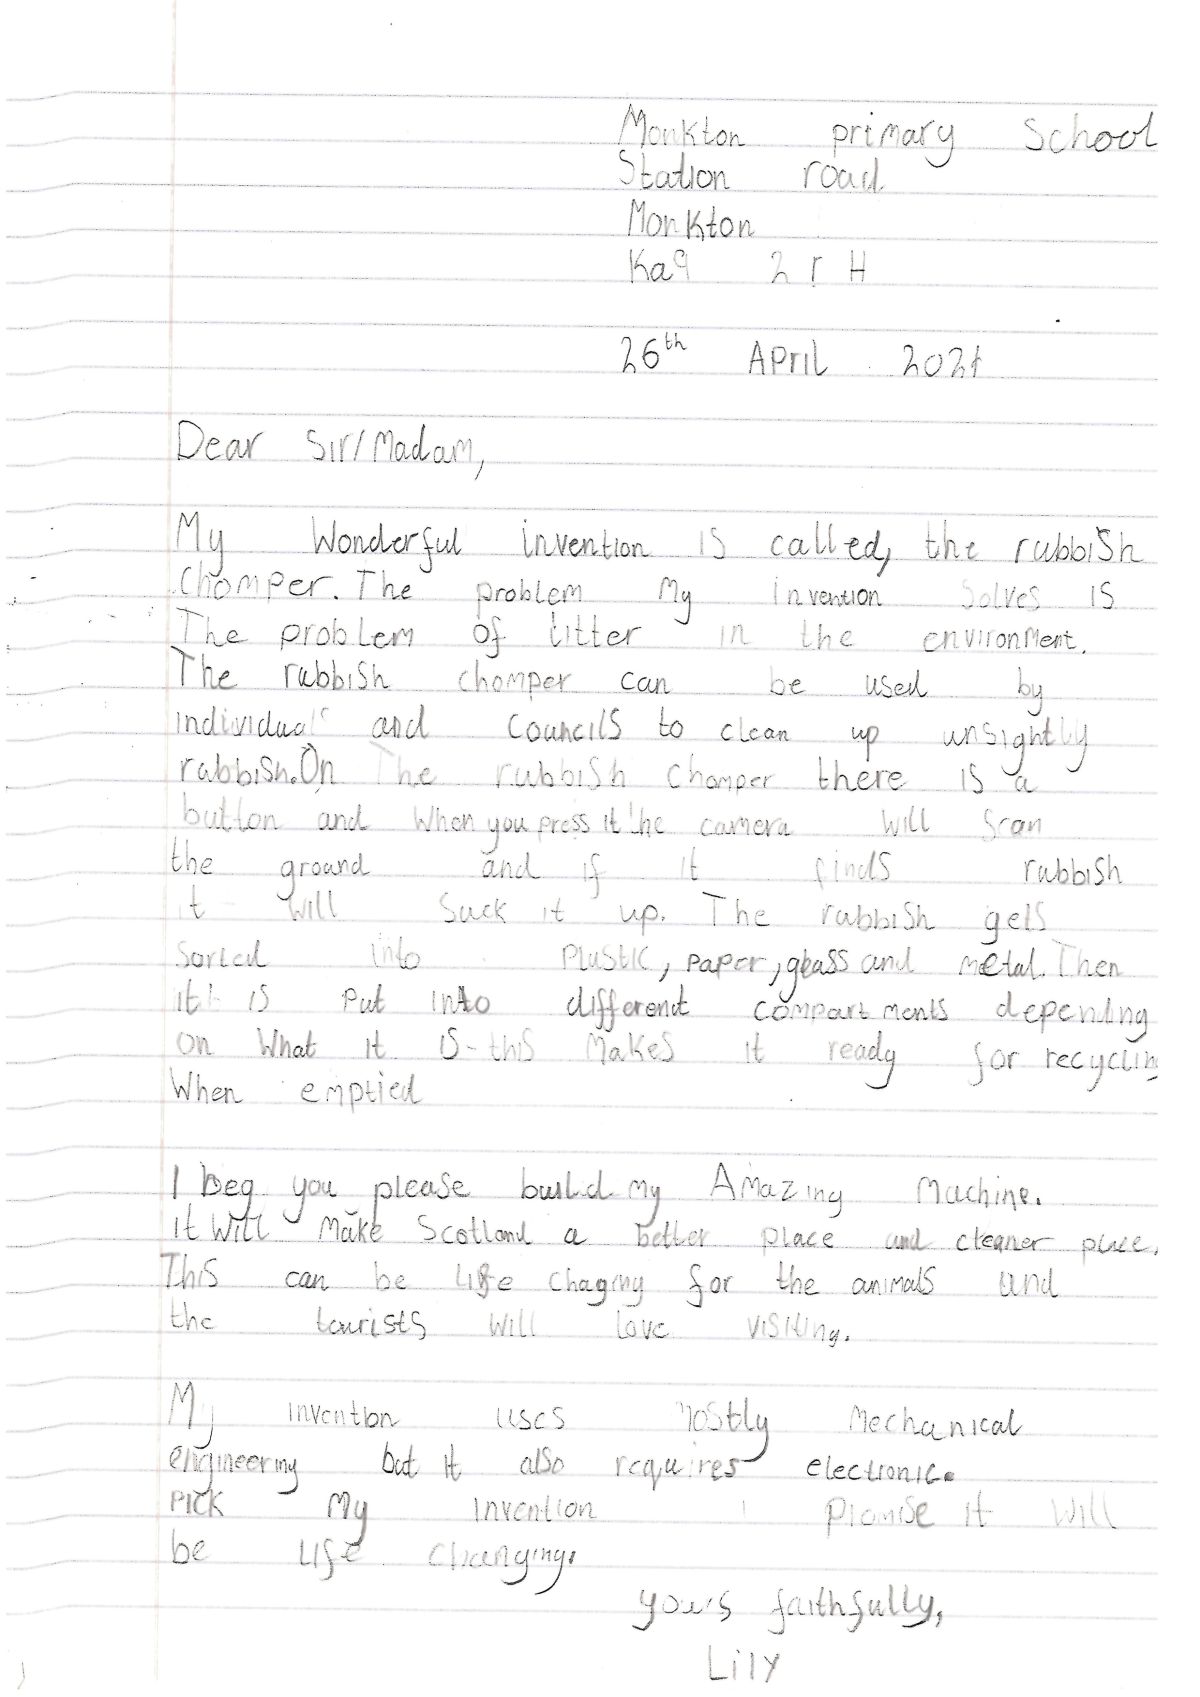 Monkton primary School
Station road
Monkton
Ka9 2rH
26th April 2021
Dear Sir/Madam,
My Wonderful invention is called, the rubbish
Chomper. The problem My invention Solves is
The problem of litter in the environment.
The rubbish chomper can be used by
individuals and councils to clean up unsightly
rubbish. On The rubbish chomper there is a
button and When you press it the camera will scan
the ground and if it finds rubbish
it will suck it up. The rubbish gets
sorted into Plastic, paper, glass and metal. Then
it is put into different compartments depending
on What it is - this Makes it ready for recycling
When emptied
I beg you please build my Amazing Machine.
it Will Make Scotland a better place and cleaner place.
This can be life chaging for the animals and
the tourists will love visiting.
My invention uses Mostly Mechanical
engineering but it also requires electronic.
Pick My invention i promise it will
be life changing.
yours faithfully,
Lily